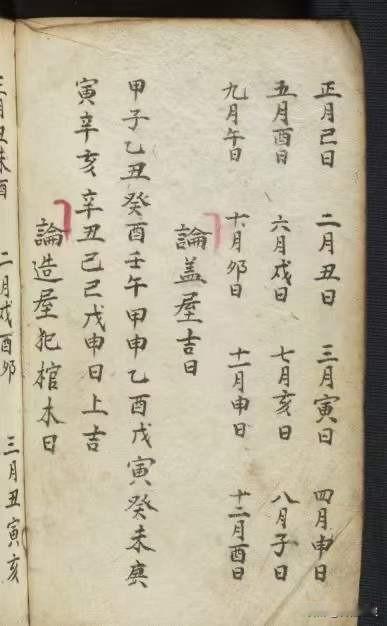 正月己日 二月丑日 三月寅日 四月申日
五月酉日 六月戌日 七月亥日 八月子日
九月午日 十月夘日 十一月申日 十二月酉日
論盖屋吉日
甲子乙丑癸酉壬午甲申乙酉戊寅癸未庚
寅辛亥辛丑己己戊申日上吉
論造屋犯棺木日
三月丑未酉 二月戌酉夘 三月丑寅亥